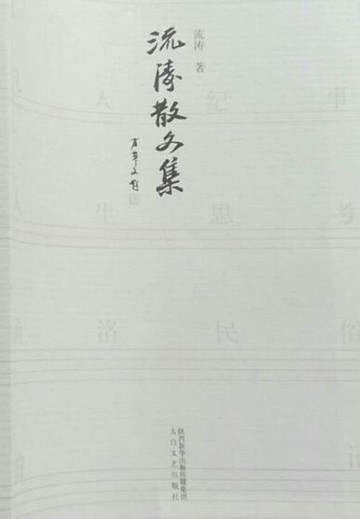 流涛 著
流涛散文集
人 纪 事
人 生 思 考
洛 民 俗
陕西新华出版传媒集团
太白文艺出版社